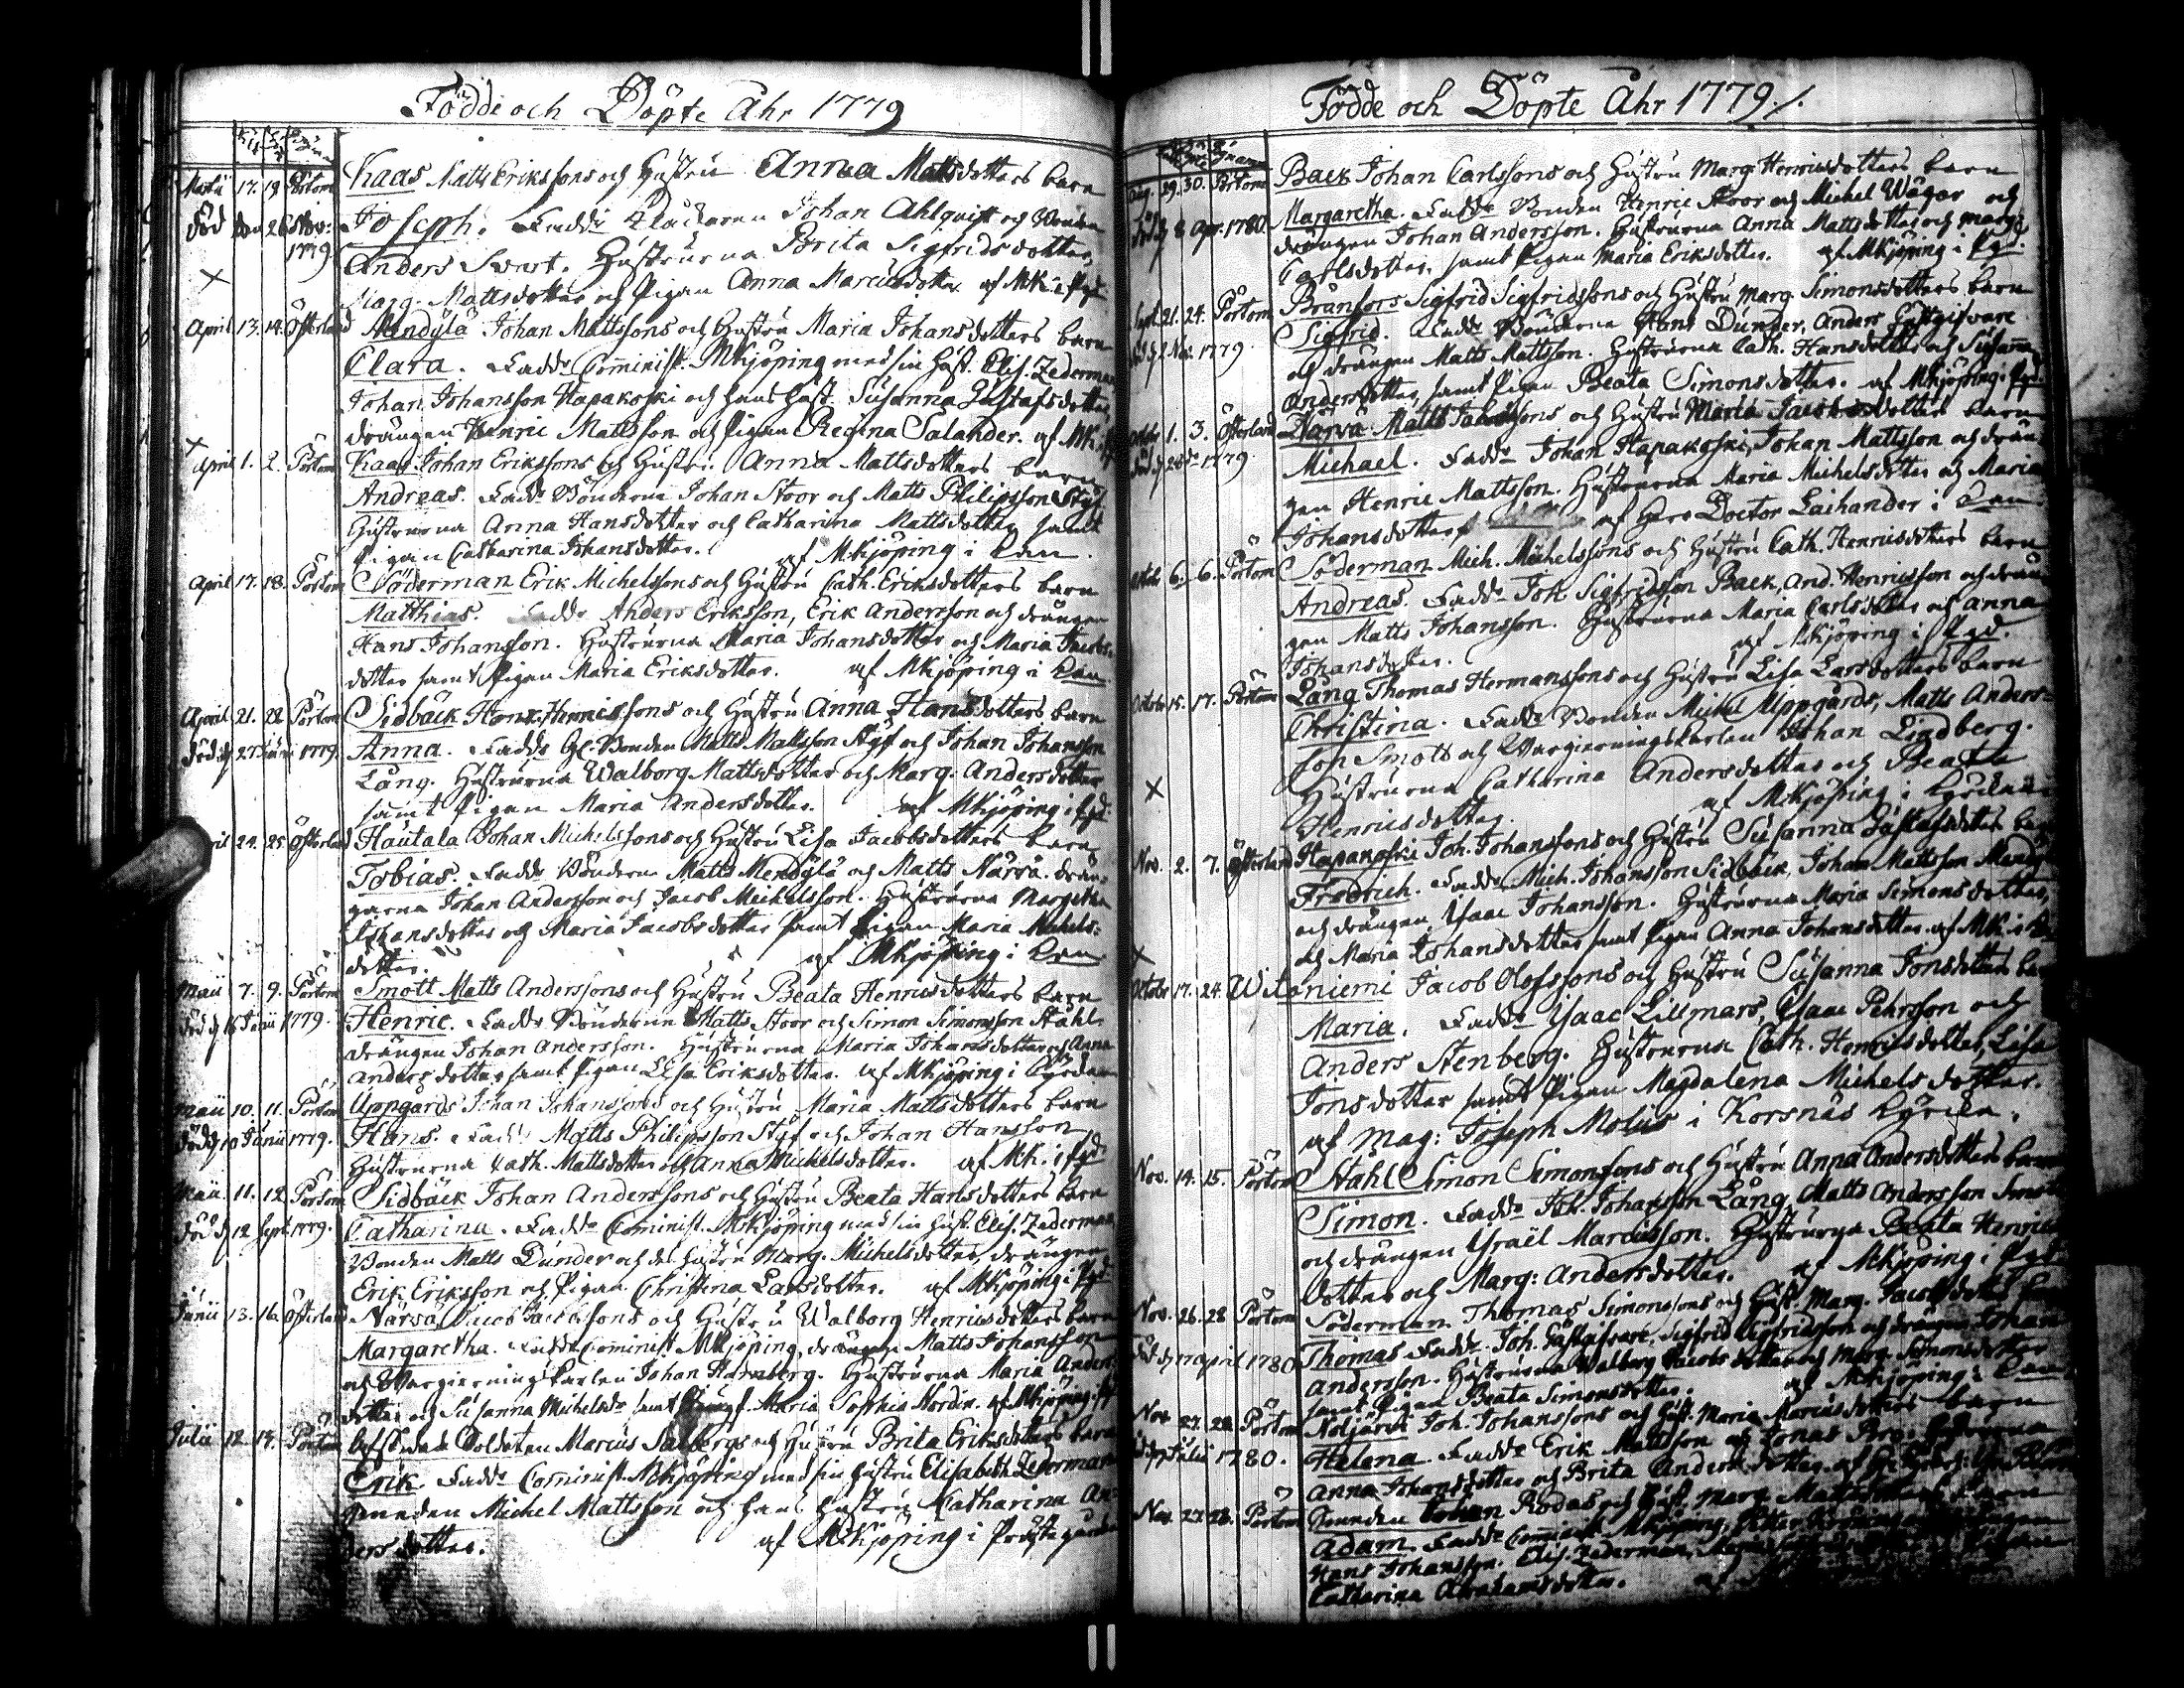 Födde och Döpte Åhr 1779
Martii 17. 19 Pörtom Kaas Matts Erikssons och Hustru Anna Mattsdotters barn
Död den 26 Nov: Joseph. Fadd: Klåckaren Johan Ahlquist och Bonden
1779 Anders Svart. Hustrurna Brita Sigfridsdotter,
× Marg. Mattsdotter och Pigan Anna Marcusdotter af MK i Pgd
April 13. 14. Österland Mendylä Johan Mattssons och Hustru Maria Johansdotters barn
Clara. Fadd: Cominist. MKjöping med sin Hust. Elis. Zederman
Johan Johansson Hapakoski och hans Hust. Susanna Gustafsdotter,
drängen Henric Mattsson och Pigan Regina Salander. af MK. i
×
April 1. 2. Pörtom Kaas Johan Erikssons och Hustru Anna Mattsdotters barn
Andreas. Fadd: Bönderne Johan Stoor och Matts Philipsson Styf
Hustrurna Anna Hansdotter och Catharina Mattsdotter samt
Pigan Catharina Johansdotter. af MKjöping i
April 17. 18. Pörtom Söderman Erik Michelssons och Hustru Cath. Eriksdotters barn
Matthias. Fadd: Anders Eriksson, Erik Andersson och drängen
Hans Johansson. Hustrurna Maria Johansdotter och Maria Jacobs-
dotter samt Pigan Maria Eriksdotter. af MKjöping i
April 21. 22 Pörtom Sidbäck Hans Henricssons och Hustru Anna Hansdotters barn
Död d 27 Junii 1779. Anna. Fadd: Gl. Bonden Matts Mattsson Styf och Johan Johansson
Lång. Hustrurna Walborg Mattsdotter och Marg. Andersdotter
samt Pigan Maria Andersdotter. af MKjöping i Pgd.
April 24. 25. Österland Hautala Johan Michelssons och Hustru Lisa Jacobsdotters barn
Tobias. Fadd: Bönderne Matts Mendylä och Matts Närvä. drän-
garna Johan Andersson och Jacob Michelsson. Hustrurna Margetha
Johansdotter och Maria Jacobsdotter samt Pigan Maria Michels-
dotter. af MKjöping i
Maii 7. 9. Pörtom Smott Matts Anderssons och Hustru Beata Henricsdotters barn
Död d 16 Junii 1779. Henric. Fadd: Bönderne Matts Stoor och Simon Simonsson Stähl.
drängen Johan Andersson. Hustrurna Maria Johansdotter och Anna
Andersdotter samt Pigan Lisa Eriksdotter. af MKjöping i Kyrckan
Maii 10. 11. Pörtom Uppgårds Johan Johanssons och Hustru Maria Mattsdotters barn
Död d 10 Junii 1779. Hans. Fadd: Matts Philipsson Styf och Johan Hansson
Hustrurna Cath. Mattsdotter och Anna Michelsdotter. af MK. i Pgd.
Maii. 11. 12. Pörtom Sidbäck Johan Anderssons och Hustru Beata Hansdotters barn
Död d 12 Sept. 1779. Catharina. Fadd: Cominist. MKjöping med sin Hust. Elis. Zederman
Bonden Matts Dunder och des Hustru Marg. Michelsdotter, drängen
Erik Eriksson och Pigan Christina Larsdotter. af MKjöping i Pgd
Junii 13. 16. Österland Närvä Jacob Jacobssons och Hustru Walborg Henricsdotters barn
Margaretha. Fadd: Cominist MKjöping, drängen Matts Johansson
och Wargieringskarlen Johan Harnberg. Hustrurna Maria Anders-
dotter och Susanna Michelsdr samt Jungf. Maria Sophia Nordin. af MKjöping i
Julii 12. 14. Pörtom Afskedade Soldaten Marcus Salbergs och Hustru Brita Eriksdotters barn
Erik. Fadd: Cominist. MKjöping med sin Hustru Elisabeth Zederman
Michel Mattsson och hans Hustru Catharina An-
dersdotter. af MKjöping i Prästegården
Födde och Döpte Åhr 1779./.
Aug. 29. 30. Pörtom Back Johan Carlssons och Hustru Marg Henricsdotters barn
Död d 8 Apr. 1780. Margaretha. Fadd: Bonden Henric Stoor och Michel Wägar och
drängen Johan Andersson. Hustrurna Anna Mattsdotter och Marg:
Carlsdotter, samt Pigan Maria Eriksdotter. af MKjöping i Pgd.
Sept. 21. 24. Pörtom Bränfors Sigfrid Sigfridssons och Hustru Marg. Simonsdotters barn
Nov. 1779. Sigfrid. Fadd: Bönderne Hans Dunder, Anders Gästgifvare
och drängen Matts Mattsson. Hustrurna Cath. Hansdotter och Susanna
Andersdotter, samt Pigan Beata Simonsdotter. af MKjöping i Pgd.
Octobr 1. 3. Österland Närvä Matts Jacobssons och Hustru Maria Jacobsdotters barn
1779 Michael. Fadd: Johan Hapakoski, Johan Mattsson och drän-
gen Henric Mattsson. Hustrurna Maria Michelsdotter och Maria
Johansdotter. af Herr Doctor Laihander i
Octobr 6. 6. Pörtom Söderman Mich. Michelssons och Hustru Cath. Henricsdotters barn
Andreas. Fadd: Joh. Sigfridsson Back, And. Henricsson och drän-
gen Matts Johansson. Hustrurna Maria Carlsdotter och Anna
Johansdotter. af MKjöping i Pgd.
Octobr 15. 17. Pörtom Lång Thomas Hermanssons och Hustru Lisa Larsdotters barn
Christina. Fadd: Bonden Michel Uppgårds, Matts Anders-
son Smott och Wargieringskarlen Johan Lindberg.
× Hustrurna Catharina Andersdotter och Beata
Henricsdotter. af MKjöping i Kyrckan
Nov. 2. 7. Österland Hapakoski Joh. Johanssons och Hustru Susanna Gustafsdotters barn
Fredrich. Fadd: Mich. Johansson Sidbäck, Johan Mattsson Mendylä
och drängen Isaac Johansson. Hustrurna Maria Simonsdotter,
och Maria Johansdotter samt Pigan Anna Johansdotter af MK. i
×
Octobr 17. 24. Witoniemi Jacob Olofssons och Hustru Susanna Jonsdotters barn
Maria. Fadd: Isaac Lillmars, Isaac Pehrsson och
Anders Stenberg. Hustrurna Cath. Henricsdotter, Lisa
Jonsdotter samt Pigan Magdalena Michelsdotter.
af Mag: Joseph Molus i Korsnäs Kyrcka.
Nov. 14. 15. Pörtom Stähl Simon Simonsons och Hustru Anna Andersdotters barn
Simon. Fadd: Joh. Johansson Lång, Matts Andersson Smott
och drängen Israël Marcusson. Hustrurna Beata Henrics-
dotter och Marg: Andersdotter. af MKjöping i Pgd
Nov. 26. 28 Pörtom Söderman Thomas Simonssons och Hust. Marg. Jacobsdotters barn
Död d 17 April 1780 Thomas Fadd: Joh. Gästgifvare, Sigfrid Sigfridsson och drängen Johan
Andersson. Hustrurna Walborg Jacobsdotter och Marg. Simonsdotter
samt Pigan Beata Simonsdotter. af MKjöping i
Nov 27. 28. Pörtom Noljärvi Joh. Johanssons och Hust. Maria Marcusdotters barn
Julii 1780. Helena. Fadd: Erik Mattsson och Jonas Bro. Hustrurna
Anna Johansdotter och Brita Andersdotter.
Nov. 27. 28. Pörtom Johan Rodas och Hust. Marg. Mattsdotters barn
Adam. Fadd: Cominist MKjöping, Petter
Hans Johansson. Elis. Zederman,
Catharina Abrahamsdotter.